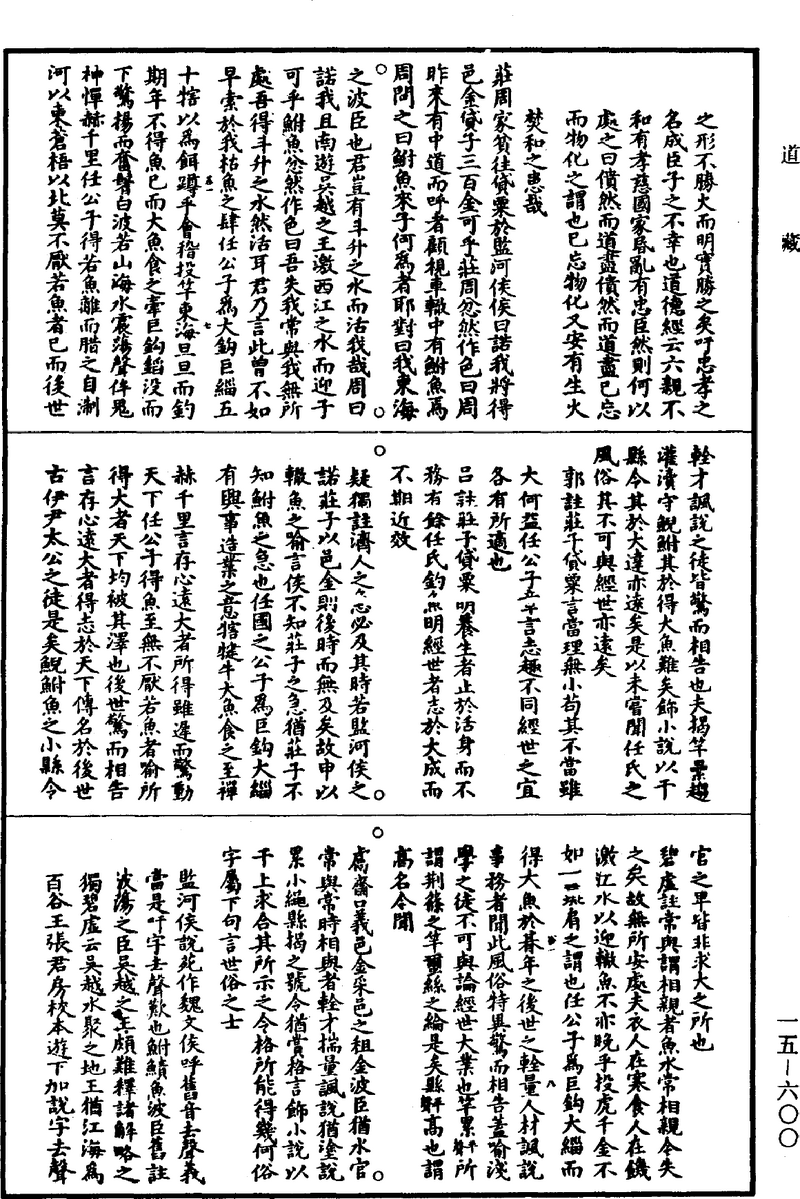 道藏
之形不勝大而明實勝之矣吁忠孝之
名成臣子之不幸也道德經云六親不
和有孝慈國家昏亂有忠臣然則何以
處之曰僓然而道盡僓然而道盡已忘
而物化之謂也已忘物化又安有生火
焚和之患哉
莊周家貧往貸粟於監河侯侯曰諾我將得
邑金貸子三百金可乎莊周忿然作色曰周
昨來有中道而呼者顧視車轍中有鮒魚焉
周問之曰鮒魚來子何為者耶對曰我東海
之波臣也君豈有斗升之水而活我哉周曰
諾我且南遊吳越之王激西江之水而迎子
可乎鮒魚忿然作色曰吾失我常與我無所
處吾得斗升之水然活耳君乃言此曾不如
早索於我枯魚之肆任公子為大鈎巨緇五
十犗以為餌蹲乎會稽投竿東海旦旦而釣
期年不得魚已而大魚食之牽巨鈎錎沒而
下驚揚而奮鬐白波若山海水震蕩聲侔鬼
神憚赫千里任公子得若魚離而腊之自淛
河以東蒼梧以北莫不厭若魚者已而後世
輇才諷說之徒皆驚而相告也夫揭竿累趨
灌瀆守鯢鮒其於得大魚難矣飾小說以干
縣令其於大達亦遠矣是以未嘗聞任氏之
風俗其不可與經世亦遠矣
郭註莊子貸粟言當理無小苟其不當雖
大何益任公子言志趣不同經世之宜
各有所適也
呂註莊子貸粟明養生者止於活身而不
務有餘任氏釣魚明經世者志於大成而
不期近效
疑獨註濟人之急必及其時若監河侯之
諾莊子以邑金則後時而無及矣故申以
轍魚之喻言侯不知莊子之急猶莊子不
知鮒魚之急也任國之公子為巨鈎大緇
有與事造業之意犗犍牛大魚食之至憚
赫千里言存心遠大者所得雖遲而驚動
天下任公子得魚至無不厭若魚者喻所
得大者天下均被其澤也後世驚而相告
言存心遠大者得志於天下傳名於後世
古伊尹太公之徒是矣鯢鮒魚之小縣令
官之卑皆非求大之所也
碧虛註常與謂相親者魚水常相親今失
之矣故無所安處夫衣人在寒食人在饑
激江水以迎轍魚不亦晚乎投虎千金不
如一豚肩之謂也任公子為巨鈎大緇而
得大魚於朞年之後世之輇量人材諷說
事務者聞此風俗特異驚而相告蓋喻淺
學之徒不可與論經世大業也竿累所
謂荆篠之竿蠒絲之綸是矣縣高也謂
高名令聞
鬳齋口義邑金采邑之租金波臣猶水官
常與常時相與者輇才揣量諷說猶塗說
累小繩縣揭之號令猶賞格言飾小說以
干上求合其所示之令格所能得幾何俗
字屬下句言世俗之士
監河侯說苑作魏文侯呼舊音去聲義
當是吁字去聲歎也鮒鯖魚波臣舊註
波蕩之臣吳越之王頗難釋諸解略之
獨碧虛云吳越水聚之地王猶江海為
百谷王張君房校本遊下加說字去聲
一五—六〇〇